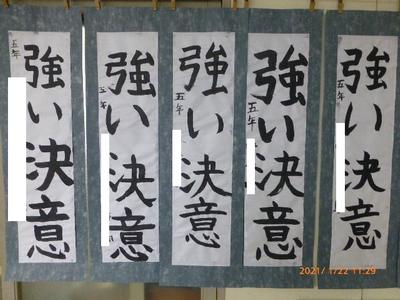 強い決意
五年
強い決意
五年
強い決意
五年
強い決意
五年
強い決意
五年
2021/ 1/22 11:29